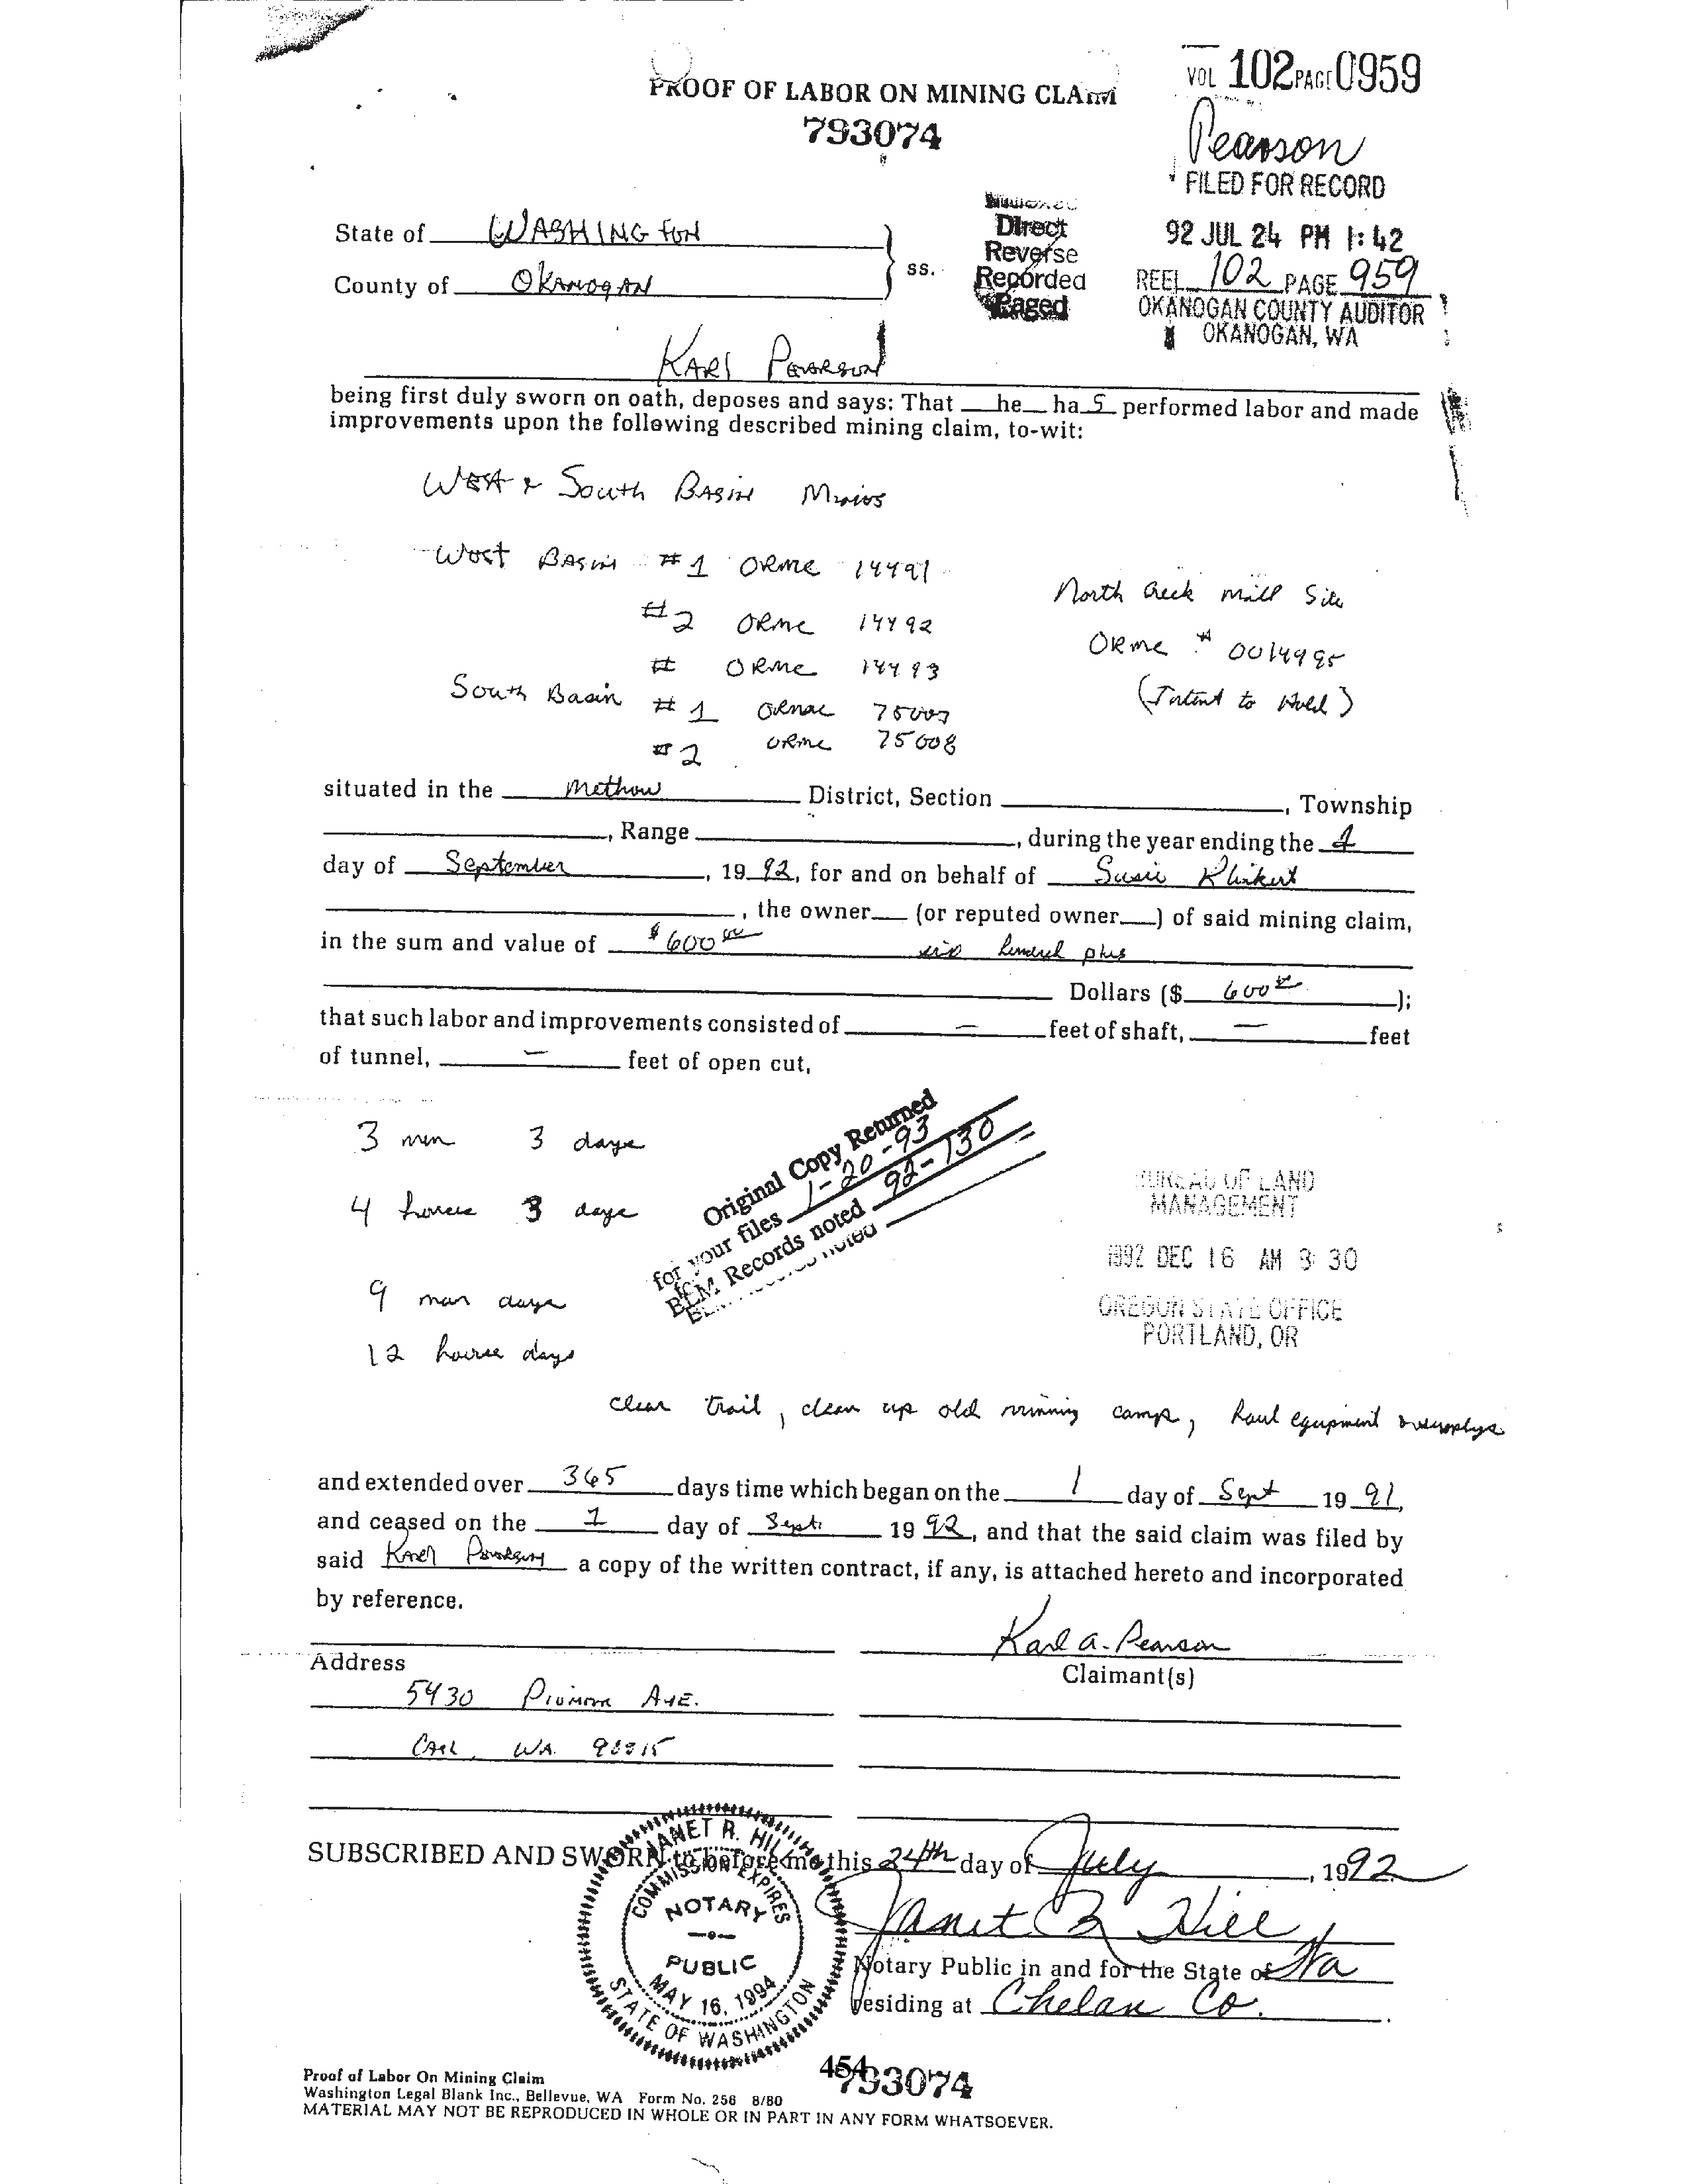 VOL 102 PAGE 0959
PROOF OF LABOR ON MINING CLAIM
793074
Pearson
FILED FOR RECORD
92 JUL 24 PM 1:42
REEL 102 PAGE 959
OKANOGAN COUNTY AUDITOR
OKANOGAN, WA
Direct
Reverse
Recorded
Paged
State of WASHINGTON
County of OKANOGAN
ss.
KARL PEARSON
being first duly sworn on oath, deposes and says: That he has performed labor and made
improvements upon the following described mining claim, to-wit:
West & South BASIN Mines
West BASIN #1 ORMC 14491
#2 ORMC 14492
# ORMC 14493
South Basin #1 ORMC 75007
#2 ORMC 75008
North Creek Mill Site
ORMC # 0014995
(Intent to Hold)
situated in the Methow District, Section , Township
, Range , during the year ending the 1
day of September , 19 92, for and on behalf of Susie Klinkert
, the owner (or reputed owner ) of said mining claim,
in the sum and value of $600 00 six hundred plus
Dollars ($ 600 );
that such labor and improvements consisted of — feet of shaft, — feet
of tunnel, — feet of open cut,
3 men 3 days
4 horses 3 days
9 man days
12 horse days
Original Copy Returned
for your files 1-20-93
BLM Records noted 92-130
BUREAU OF LAND
MANAGEMENT
1992 DEC 16 AM 9:30
OREGON STATE OFFICE
PORTLAND, OR
clear trail, clean up old mining camp, haul equipment & supplys
and extended over 365 days time which began on the 1 day of Sept 19 91,
and ceased on the 1 day of Sept. 19 92, and that the said claim was filed by
said Karl Pearson a copy of the written contract, if any, is attached hereto and incorporated
by reference.
Karl A. Pearson
Address
Claimant(s)
5430 AVE.
WA.
SUBSCRIBED AND SWORN to before me this 24th day of July , 1992
JANET R. HILL
COMMISSION EXPIRES
NOTARY
PUBLIC
MAY 16, 1994
STATE OF WASHINGTON
Janet R Hill
Notary Public in and for the State of Wa
residing at Chelan Co.
454
793074
Proof of Labor On Mining Claim
Washington Legal Blank Inc., Bellevue, WA Form No. 256 8/80
MATERIAL MAY NOT BE REPRODUCED IN WHOLE OR IN PART IN ANY FORM WHATSOEVER.